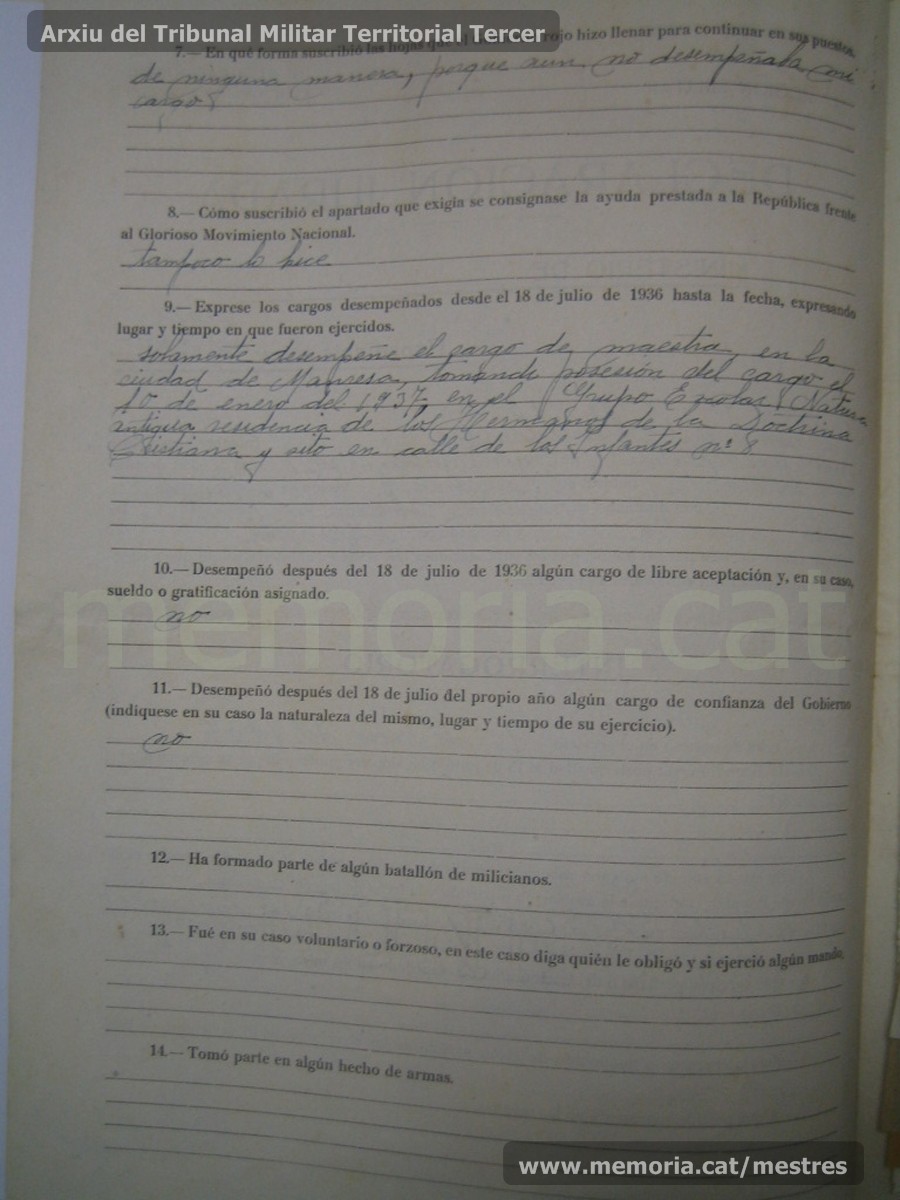 Arxiu del Tribunal Militar Territorial Tercer
7.— En qué forma suscribió las hojas que el rojo hizo llenar para continuar en sus puestos.
de ninguna manera, porque aun no desempeñaba mi
cargo
8.— Cómo suscribió el apartado que exigía se consignase la ayuda prestada a la República frente
al Glorioso Movimiento Nacional.
tampoco lo hice
9.— Exprese los cargos desempeñados desde el 18 de julio de 1936 hasta la fecha, expresando
lugar y tiempo en que fueron ejercidos.
solamente desempeñe el cargo de maestra, en la
ciudad de Manresa, tomando posesión del cargo el
1º de enero del 1937, en el Grupo Escolar Natura
antigua residencia de los Hermanos de la Doctrina
Cristiana y sito en calle de los Infantes nº 8
10.— Desempeñó después del 18 de julio de 1936 algún cargo de libre aceptación y, en su caso,
sueldo o gratificación asignado.
no
memoria.cat
11.— Desempeñó después del 18 de julio del propio año algún cargo de confianza del Gobierno
(indíquese en su caso la naturaleza del mismo, lugar y tiempo de su ejercicio).
no
12.— Ha formado parte de algún batallón de milicianos.
13.— Fué en su caso voluntario o forzoso, en este caso diga quién le obligó y si ejerció algún mando.
14.— Tomó parte en algún hecho de armas.
www.memoria.cat/mestres